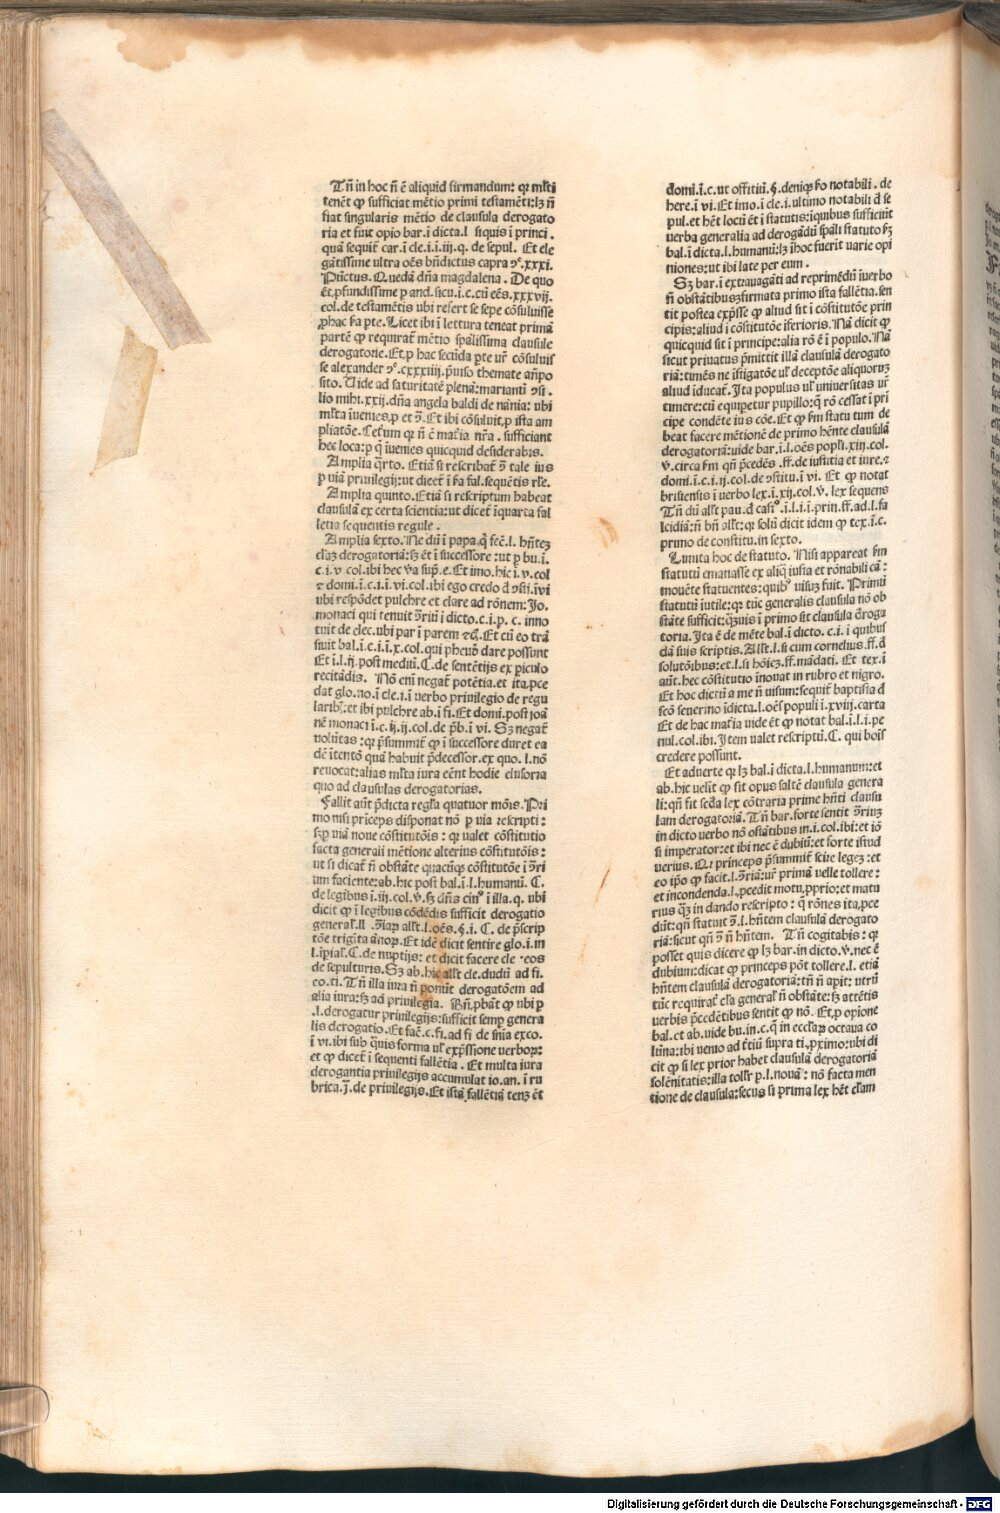 Tñ in hoc ñ ē aliquid firmandum: qꝛ mĺti
tenēt ꝙ sufficiat mētio primi testamēti: lꝫ ñ
fiat singularis mētio de clausula derogato
ria et fuit opio bar. ī dicta. l siquis ī princi .
quā sequit̄ car. ī cle. i. ī. iij. q. de sepul. Et ele
gātissime ultra oēs bñdictus capra ꝯº. xxxi.
Pūctus. Quedā dña magdalena . De quo
ēt ꝓfundissime p and. sicu. ī. c. cū eēs. xxxvij.
col. de testamētis ubi refert se sepe cōsuluisse
ꝓhac ƀa pte. Licet ibi ī lectura teneat primā
partē ꝙ requirat̄ mētio spālissima clausule
derogatorie. Et ꝓ hac secūda pte ur̄ cōsuluis
se alexander ꝯº. cxxxiiij. ꝑuiso themate añpo
sito. Uide ad saturitatē plenā: marianū ꝯsi .
lio mihi. xxij. dña angela baldi de nānia: ubi
mĺta īuenies. p et ꝯ̄. Et ibi cōsuluit. p ista am
pliatōe. Cet̄um qꝛ ñ ē mat̄ia nr̄a . sufficiant
hec loca: p q̄ īuenies quicquid desiderabis.
Amplia q̄rto. Etiā si rescribat̄ ꝯ̄ tale ius
p uiā priuilegij: ut dicet̄ ī ƀa fal. sequētis rĺe.
Amplia quinto. Etiā si rescriptum habeat
clausulā ex certa scientia: ut dicet̄ īquarta fal
letia sequentis regule .
Amplia sexto. Ne dū ī papa q̄ fec̄. l. hñteꝫ
cĺaꝫ derogatoriā: sꝫ ēt ī successore : ut p bu. ī.
c. i. v col. ibi hec ꝟa sup̄. e. Et imo. hic ī. v. col
⁊ domi. ī. c. i. ī. vi. col. ibi ego credo đ ꝯsti. īvi
ubi respōdet pulchre et clare ad rōnem: Jo.
monaci qui tenuit ꝯ̄riū ī dicto. c. i. p. c. inno
tuit de elec. ubi par ī parem ⁊c̄. Et cū eo trā
siuit bal. ī. c. i. ī. x. col. qui phcuō dare possunt
Et ī. l. ij. post mediū. C. de sentētijs ex piculo
recitādis. Nō enī negat̄ potētia. et ita ꝓce
dat glo. no. ī cle. i. ī verbo priuilegio de regu
laribꝰ. et ibi pulchre ab. ī fi. Et domi. post joā
nē monaci ī. c. ij. ij. col. de p̄b. ī vi. Sꝫ negat̄
volūtas : qꝛ p̄sumit̄ ꝙ ī successore duret ea
dē ītentō quā habuit p̄decessor. ex quo. l. nō
reuocat: alias mĺta iura eēnt hodie elusoria
quo ad clausulas derogatorias.
Fallit aūt p̄dicta regĺa quatuor mōis. Pri
mo nisi princeps disponat nō p uia rescripti :
sꝫ p uiā noue cōstitutōis : qꝛ valet cōstitutio
facta generali mētione alterius cōstitutōis :
ut si dicat̄ ñ obstāte quacūqꝫ cōstitutōe ī ꝯ̄ri
um faciente: ab. hic post bal. ī. l. humanū. C.
de legibus ī. iij. col. v. sꝫ dñs cinº ī illa. q. ubi
dicit ꝙ ī legibus cōdēdis sufficit derogatio
general̄. ll ꝯ̄iaꝝ alĺt. l. oēs. §. i. C. de p̄scrip
tōe trigīta ānoꝝ. Et idē dicit sentire glo. ī. in
l. īpial̄. C. de nuptijs: et dicit facere cle ⁊eos
de sepulturis. Sꝫ ab. hic alĺt cle. dudū ad fi.
eo. ti. Tñ illa iura ñ ponūt derogatōem ad
alia iura: sꝫ ad priuilegia. Bñ. ꝓbāt̄ ꝙ ubi p
. l. derogatur priuilegijs: sufficit semp genera
lis derogatio. Et fac̄. c. fi. ad fi de sñia exco.
ī vi. ibi sub q̄uis forma uĺ exp̄ssione verboꝝ:
et ꝙ dicet̄ ī sequenti fallētia . Et multa iura
derogantia priuilegijs accumulat io. an. ī ru
brica. j. de priuilegijs. Et istā fallētiā tenꝫ ēt
domi. ī. c. ut offitiū. §. deniqꝫ ƀo notabili . de
here. ī vi. Et imo. ī cle. i. ultimo notabili đ se
pul. et hēt locū ēt ī statutis: īquibus sufficiūt
uerba generalia ad derogādū spāli statuto ẜꝫ
bal. ī dicta. l. humanū: lꝫ īhoc fuerit varie opi
niones: ut ibi late per eum .
Sꝫ bar. ī extrauagāti ad reprimēdū īuerbo
ñ obstātibusꝫ firmata primo ista fallētia. sen
tit postea exp̄sse ꝙ aliud sit ī cōstitutōe prin
cipis: aliud ī cōstitutōe īferioris. Nā dicit ꝙ
quicquid sit ī principe: alia rō ē ī populo. Nā
sicut priuatus p̄mittit illā clausulā derogato
riā: timēs ne īstigatōe uĺ deceptōe aliquoruꝫ
aliud īducat̄. Ita populus uĺ uniuersitas ur̄
timere: cū equipetur pupillo: q̄ rō cessat ī pri
cipe condēte ius cōe. Et ꝙ ẜm statu tum de
beat facere mētionē de primo hēnte clausulā
derogatoriā: uide bar. ī. l. oēs popĺi. xiij. col.
v. circa ẜm qñ p̄cedēs . ff. de iustitia et iure. ⁊
domi. ī. c. i. ij col. de ꝯstitu. ī vi. Et ꝙ notat
brisiensis ī uerbo lex. ī. xij. col. v. lex sequens
Tñ dū alĺt pau. đ castº. ī. l. i. ī. prin. ff. ad. l. fa
lcidiā: ñ bñ alĺt: qꝛ solū dicit idem ꝙ tex. ī. c.
primo de constitu. in sexto.
Limita hoc de statuto. Nisi appareat ẜm
statutū emanasse ex aliq̄ iusta et rōnabili cā :
mouēte statuentes: quibꝰ uisuꝫ fuit. Primū
statutū īutile: qꝛ tūc generalis clausula nō ob
stāte sufficit: q̄ꝫuis ī primo sit clausula đroga
toria. Ita ē de mēte bal. ī dicto. c. i. ī quibus
dā suis scriptis. Alĺt. l. si cum cornelius. ff. đ
solutōibus: et. l. si hōieꝫ. ff. mādati. Et tex. ī
aūt. hec cōstitutio īnouat in rubro et nigro.
Et hoc dictū a me ñ uisum: sequit̄ baptista đ
scō seuerino īdicta. l. oēs populi ī. xviij. carta
Et de hac mat̄ia uide ēt ꝙ notat bal. ī. l. i. pe
nul. col. ibi. Item ualet rescriptū. C. qui boīs
credere possunt.
Et aduerte qꝛ lꝫ bal. ī dicta. l. humanum: et
ab. hic uelit̄ ꝙ sit opus saltē clausula genera
li: qñ fit secđa lex cōtraria prime hñti clausu
lam derogatoriā. Tñ bar. forte sentit ꝯ̄riuꝫ
in dicto uerbo nō ostātibus in. i. col. ibi: et iō
si imperator: et ibi nec ē dubiū: et forte istud
uerius. Qꝛ princeps p̄sumit̄ scire legeꝫ : et
eo ip̄o ꝙ facit. l. ꝯ̄riā: ur̄ primā uelle tollere :
et incondenda. l. ꝓcedit motu ꝓprio: et matu
rius q̄ꝫ in dando rescripto : q̄ rōnes ita ꝓce
dūt: qñ statuit ꝯ̄. l. hñtem clausulā derogato
riā: sicut qñ ꝯ̄ ñ hñtem. Tñ cogitabis : qꝛ
posset quis dicere ꝙ lꝫ bar. in dicto. v. nec ē
dubium: dicat ꝙ princeps pōt tollere. l. etiā
hñtem clausulā derogatoriā: tñ ñ apit: utrū
tūc requirat̄ cĺa general̄ ñ obstāte: sꝫ attētis
uerbis p̄cedētibus sentit ꝙ nō. Et. p opione
bal. et ab. uide bu. in c. q̄ in eccĺaꝝ octaua co
lūna: ibi uenio ad t̄tiū supra ti. ꝓximo: ubi di
cit ꝙ si lex prior habet clausulā derogatoriā
solēnitatis: illa tollr̄ p. l. nouā: nō facta men
tione de clausula: secus si prima lex hēt cĺam
Digitalisierung gefördert durch die Deutsche Forschungsgemeinschaft - DFG